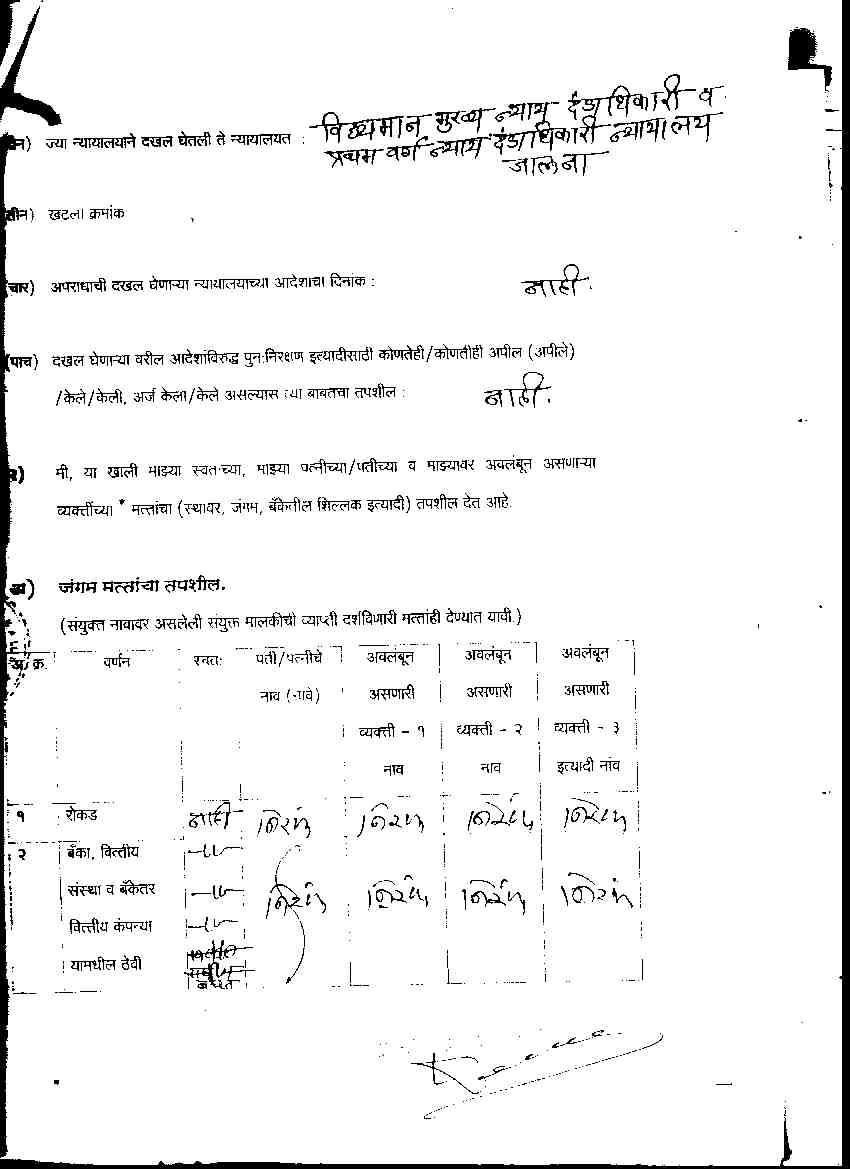 विद्यमान मुख्य न्याय दंडाधिकारी व
ज्या न्यायालयाने दखल घेतली ते न्यायालयत :
प्रथम वर्ग न्याय दंडाधिकारी न्यायालय
जालना
तीन) खटला क्रमांक
(चार) अपराधाची दखल घेणाऱ्या न्यायालयाच्या आदेशाचा दिनांक : नाही.
(पाच) दखल घेणाऱ्या वरील आदेशांविरुद्ध पुनःनिरक्षण इत्यादीसाठी कोणतेही/कोणतीही अपील (अपीले)
/केले/केली, अर्ज केला/केले असल्यास त्या बाबतचा तपशील : नाही.
मी, या खाली माझ्या स्वतःच्या, माझ्या पत्नीच्या/पतीच्या व माझ्यावर अवलंबून असणाऱ्या
व्यक्तींच्या * मत्तांचा (स्थावर, जंगम, बँकेतील शिल्लक इत्यादी) तपशील देत आहे.
जंगम मत्तांचा तपशील.
(संयुक्त नावावर असलेली संयुक्त मालकीची व्याप्ती दर्शविणारी मत्तांही देण्यात यावी.)
अ. क्र. वर्णन स्वतः पती/पत्नीचे अवलंबून अवलंबून अवलंबून
नाव (नावे) असणारी असणारी असणारी
व्यक्ती - १ व्यक्ती - २ व्यक्ती - ३
नाव नाव इत्यादी नांव
१ रोकड नाही निरंक निरंक निरंक निरंक
२ बँका, वित्तीय -॥-
संस्था व बँकेतर -॥- निरंक निरंक निरंक निरंक
वित्तीय कंपन्या -॥-
यामधील ठेवी